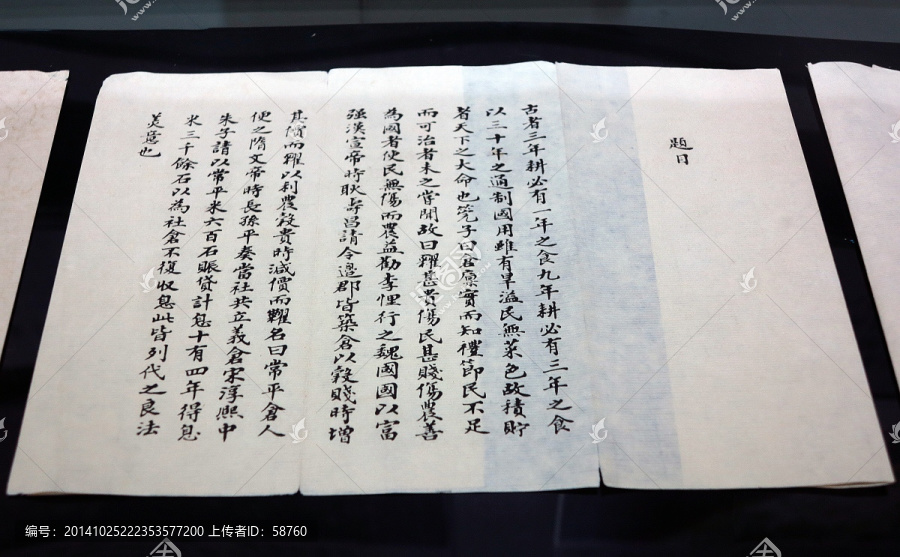 題目
古者三年耕必有一年之食九年耕必有三年之食
以三十年之通制國用雖有旱溢民無菜色故積貯
者天下之大命也筦子曰倉廪實而知禮節民不足
而可治者未之嘗聞故曰糴甚貴傷民甚賤傷農善
為國者使民無傷而農益勸李悝行之魏國國以富
强漢宣帝時耿壽昌請令邊郡皆築倉以穀賤時增
其價而糴以利農穀貴時減價而糶名曰常平倉人
便之隋文帝時長孫平奏當社共立義倉宋淳熙中
朱子請以常平米六百石賑貸計息十有四年得息
米三千餘石以為社倉不復收息此皆列代之良法
美意也
编号：20141025222353577200 上传者ID：58760